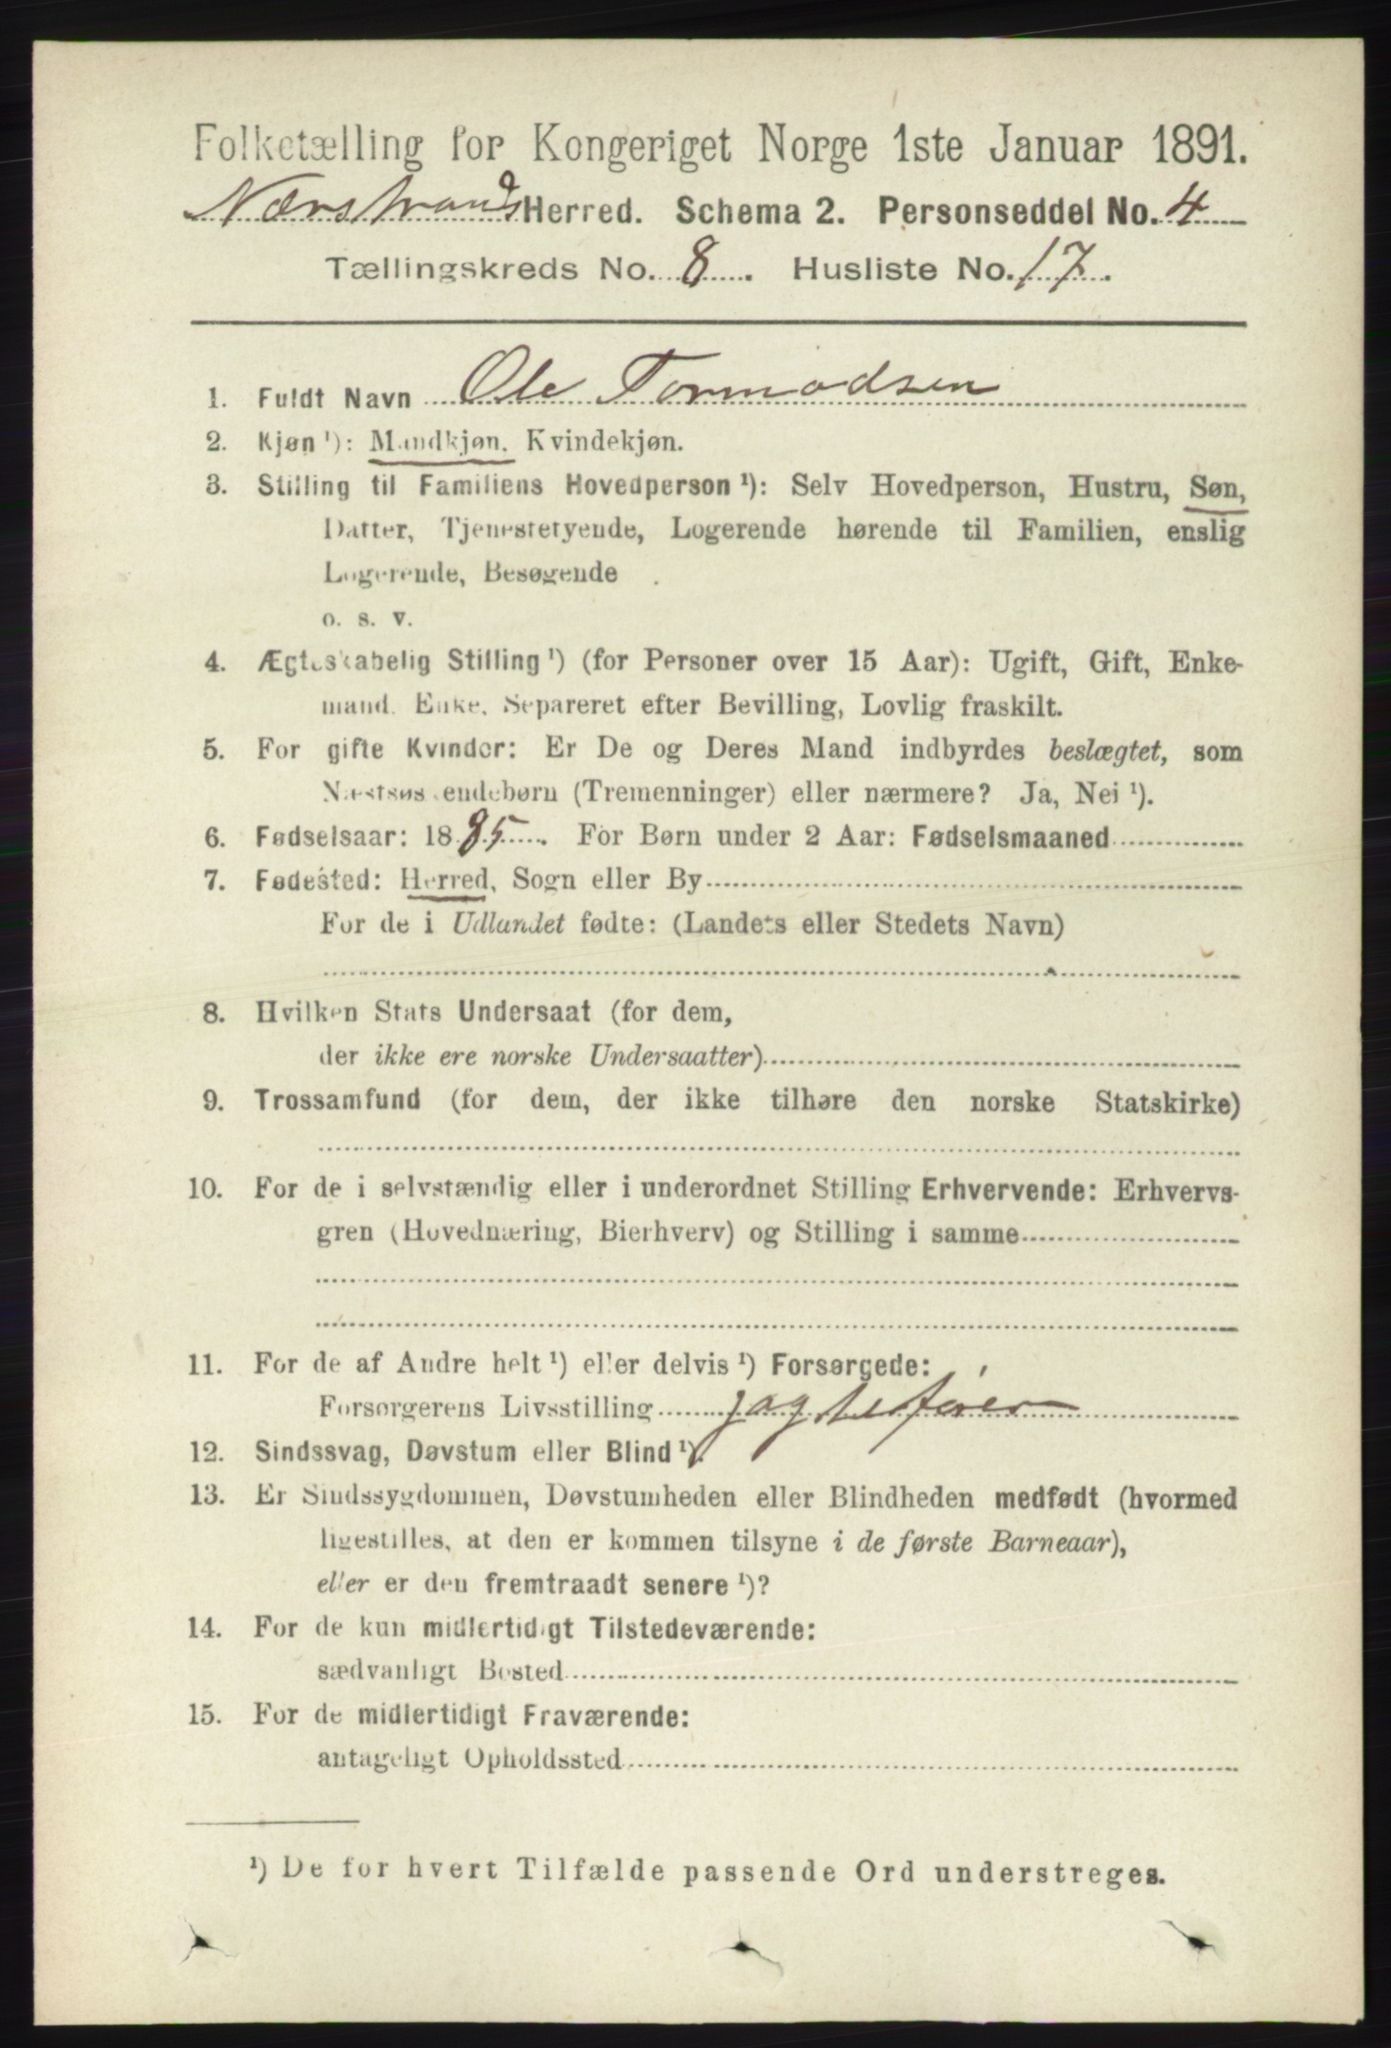 Folketælling for Kongeriget Norge 1ste Januar 1891.
Nærstrands Herred. Schema 2. Personseddel No. 4
Tællingskreds No. 8. Husliste No. 17.
1. Fuldt Navn Ole Tormodsen
2. Kjøn ¹): Mandkjøn. Kvindekjøn.
3. Stilling til Familiens Hovedperson ¹): Selv Hovedperson, Hustru, Søn,
Datter, Tjenestetyende, Logerende hørende til Familien, enslig
Logerende, Besøgende
o. s. v.
4. Ægteskabelig Stilling ¹) (for Personer over 15 Aar): Ugift, Gift, Enke-
mand, Enke, Separeret efter Bevilling, Lovlig fraskilt.
5. For gifte Kvinder: Er De og Deres Mand indbyrdes beslægtet, som
Næstsøskendebørn (Tremenninger) eller nærmere? Ja, Nei ¹).
6. Fødselsaar: 1885. For Børn under 2 Aar: Fødselsmaaned
7. Fødested: Herred, Sogn eller By
For de i Udlandet fødte: (Landets eller Stedets Navn)
8. Hvilken Stats Undersaat (for dem,
der ikke ere norske Undersaatter)
9. Trossamfund (for dem, der ikke tilhøre den norske Statskirke)
10. For de i selvstændig eller i underordnet Stilling Erhvervende: Erhvervs-
gren (Hovednæring, Bierhverv) og Stilling i samme
11. For de af Andre helt ¹) eller delvis ¹) Forsørgede:
Forsørgerens Livsstilling jagtefører
12. Sindssvag, Døvstum eller Blind ¹).
13. Er Sindssygdommen, Døvstumheden eller Blindheden medfødt (hvormed
ligestilles, at den er kommen tilsyne i de første Barneaar),
eller er den fremtraadt senere ¹)?
14. For de kun midlertidigt Tilstedeværende:
sædvanligt Bosted
15. For de midlertidigt Fraværende:
antageligt Opholdssted
¹) De for hvert Tilfælde passende Ord understreges.